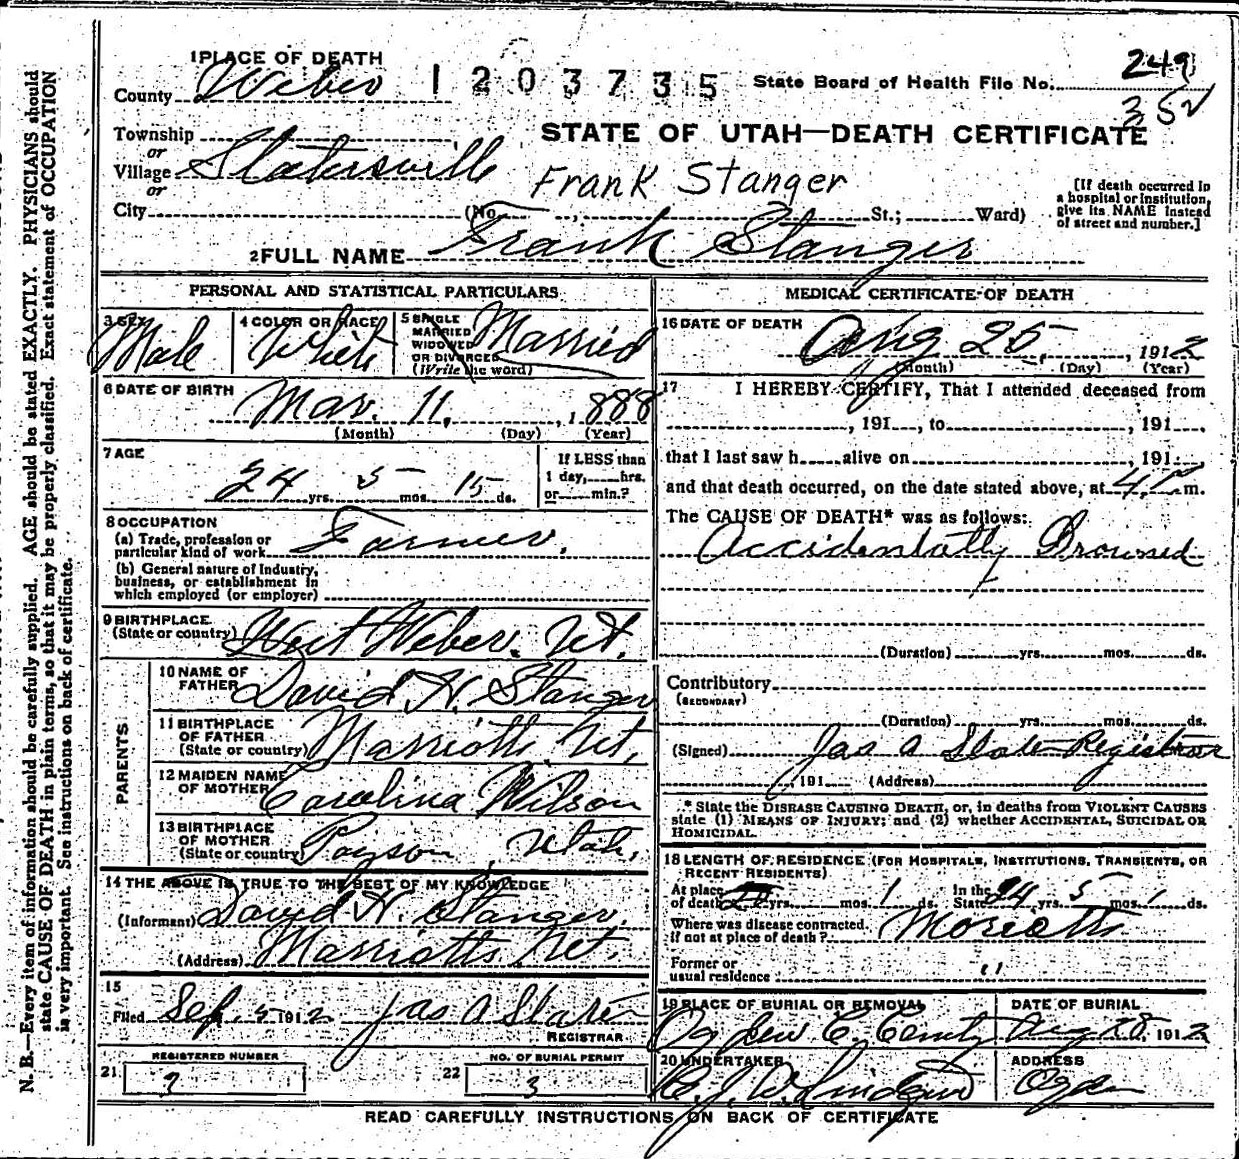 1 PLACE OF DEATH
County Weber
1203735
State Board of Health File No. 249
352
Township
or
Village Slatersville
or
City (No. , St.; Ward)
STATE OF UTAH—DEATH CERTIFICATE
Frank Stanger
[If death occurred in a hospital or institution, give its NAME instead of street and number.]
2 FULL NAME Frank Stanger
PERSONAL AND STATISTICAL PARTICULARS
3 SEX Male
4 COLOR OR RACE White
5 SINGLE MARRIED WIDOWED OR DIVORCED (Write the word) Married
6 DATE OF BIRTH Mar. 11, 1888
(Month) (Day) (Year)
7 AGE 24 yrs. 5 mos. 15 ds.
If LESS than 1 day, hrs. or min.?
8 OCCUPATION
(a) Trade, profession or particular kind of work Farmer.
(b) General nature of Industry, business, or establishment in which employed (or employer)
9 BIRTHPLACE (State or country) West Weber. Ut.
PARENTS
10 NAME OF FATHER David H. Stanger
11 BIRTHPLACE OF FATHER (State or country) Marriotts Ut.
12 MAIDEN NAME OF MOTHER Carolina Wilson
13 BIRTHPLACE OF MOTHER (State or country) Payson, Utah.
14 THE ABOVE IS TRUE TO THE BEST OF MY KNOWLEDGE
(Informant) David H. Stanger.
(Address) Marriotts Ut.
15 Filed Sep. 5 1912 Jas A Slater
REGISTRAR
REGISTERED NUMBER
21 3
NO. OF BURIAL PERMIT
22 3
MEDICAL CERTIFICATE OF DEATH
16 DATE OF DEATH Aug 25, 1912
(Month) (Day) (Year)
17 I HEREBY CERTIFY, That I attended deceased from
, 191 , to , 191 ,
that I last saw h alive on , 191
and that death occurred, on the date stated above, at 4 P m.
The CAUSE OF DEATH* was as follows:
Accidentally Drowned
(Duration) yrs. mos. ds.
Contributory
(SECONDARY)
(Duration) yrs. mos. ds.
(Signed) Jas A Slater Registrar
, 191 (Address)
* State the DISEASE CAUSING DEATH, or, in deaths from VIOLENT CAUSES state (1) MEANS OF INJURY; and (2) whether ACCIDENTAL, SUICIDAL OR HOMICIDAL.
18 LENGTH OF RESIDENCE (FOR HOSPITALS, INSTITUTIONS, TRANSIENTS, OR RECENT RESIDENTS)
At place of death yrs. mos. 1 ds. In the State 24 yrs. 5 mos. 1 ds.
Where was disease contracted, if not at place of death? Moriotts
Former or usual residence "
19 PLACE OF BURIAL OR REMOVAL Ogden C. Cemty
DATE OF BURIAL Aug 28, 1912
20 UNDERTAKER
ADDRESS Ogden
READ CAREFULLY INSTRUCTIONS ON BACK OF CERTIFICATE
N. B.—Every item of information should be carefully supplied. AGE should be stated EXACTLY. PHYSICIANS should
state CAUSE OF DEATH in plain terms, so that it may be properly classified. Exact statement of OCCUPATION
is very important. See instructions on back of certificate.